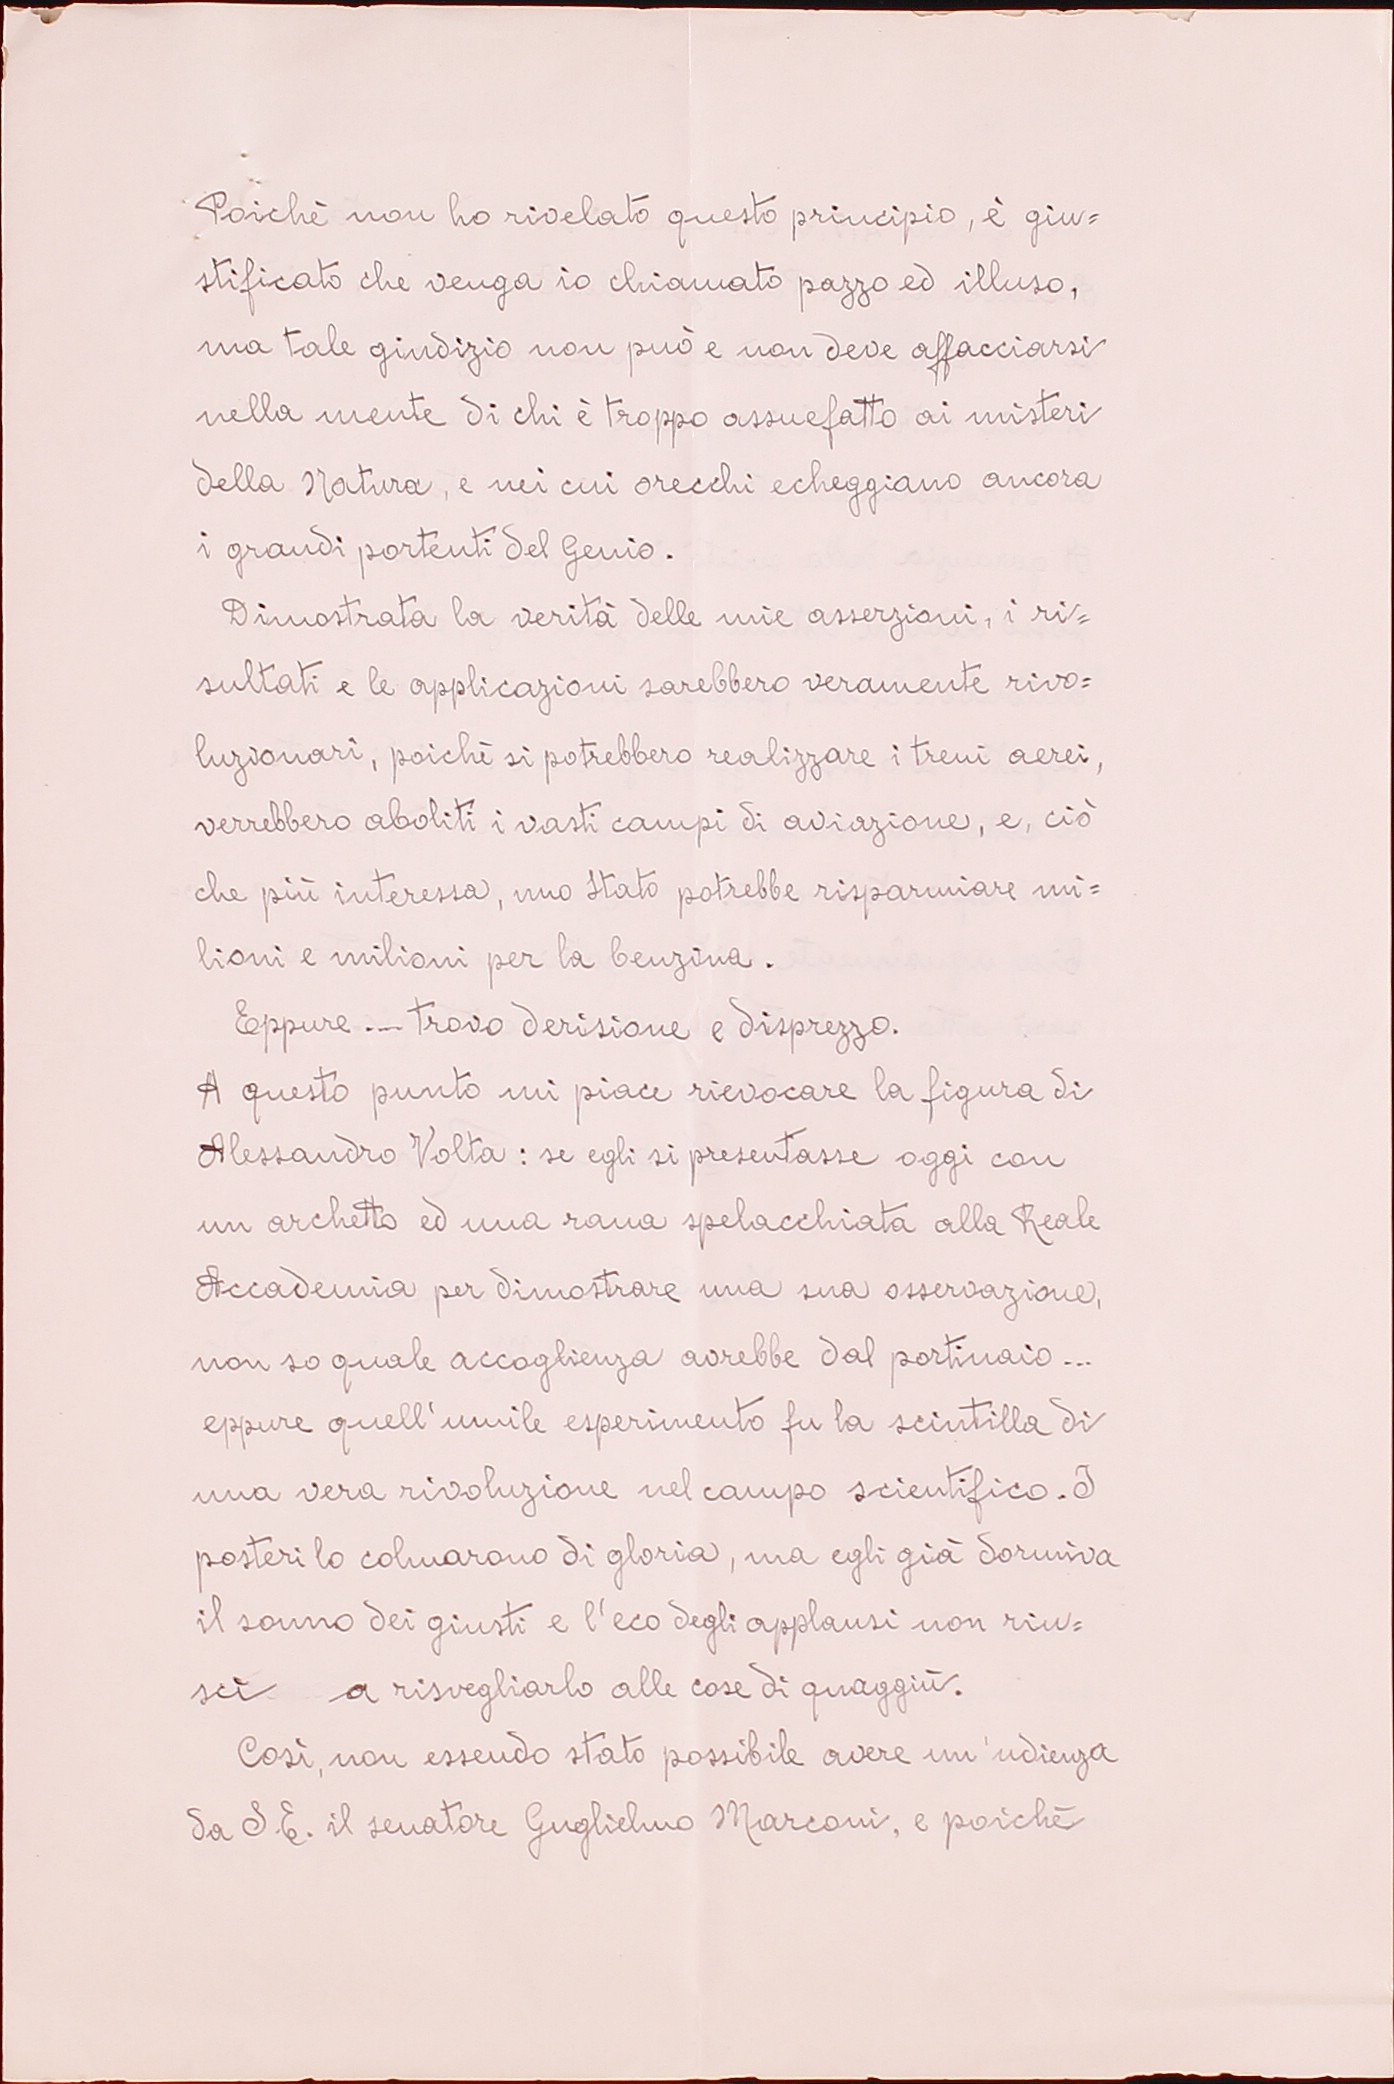 Poichè non ho rivelato questo principio, è giu=
stificato che venga io chiamato pazzo ed illuso,
ma tale giudizio non può e non deve affacciarsi
nella mente di chi è troppo assuefatto ai misteri
della Natura, e nei cui orecchi echeggiano ancora
i grandi portenti del Genio.
Dimostrata la verità delle mie asserzioni, i ri=
sultati e le applicazioni sarebbero veramente rivo=
luzionari, poichè si potrebbero realizzare i treni aerei,
verrebbero aboliti i vasti campi di aviazione, e, ciò
che più interessa, uno Stato potrebbe risparmiare mi=
lioni e milioni per la benzina.
Eppure ... trovo derisione e disprezzo.
A questo punto mi piace rievocare la figura di
Alessandro Volta: se egli si presentasse oggi con
un archetto ed una rana spelacchiata alla Reale
Accademia per dimostrare una sua osservazione,
non so quale accoglienza avrebbe dal portinaio...
eppure quell'umile esperimento fu la scintilla di
una vera rivoluzione nel campo scientifico. I
posteri lo colmarono di gloria, ma egli già dormiva
il sonno dei giusti e l'eco degli applausi non riu=
scì a risvegliarlo alle cose di quaggiù.
Così, non essendo stato possibile avere un'udienza
da S.E. il senatore Guglielmo Marconi, e poichè